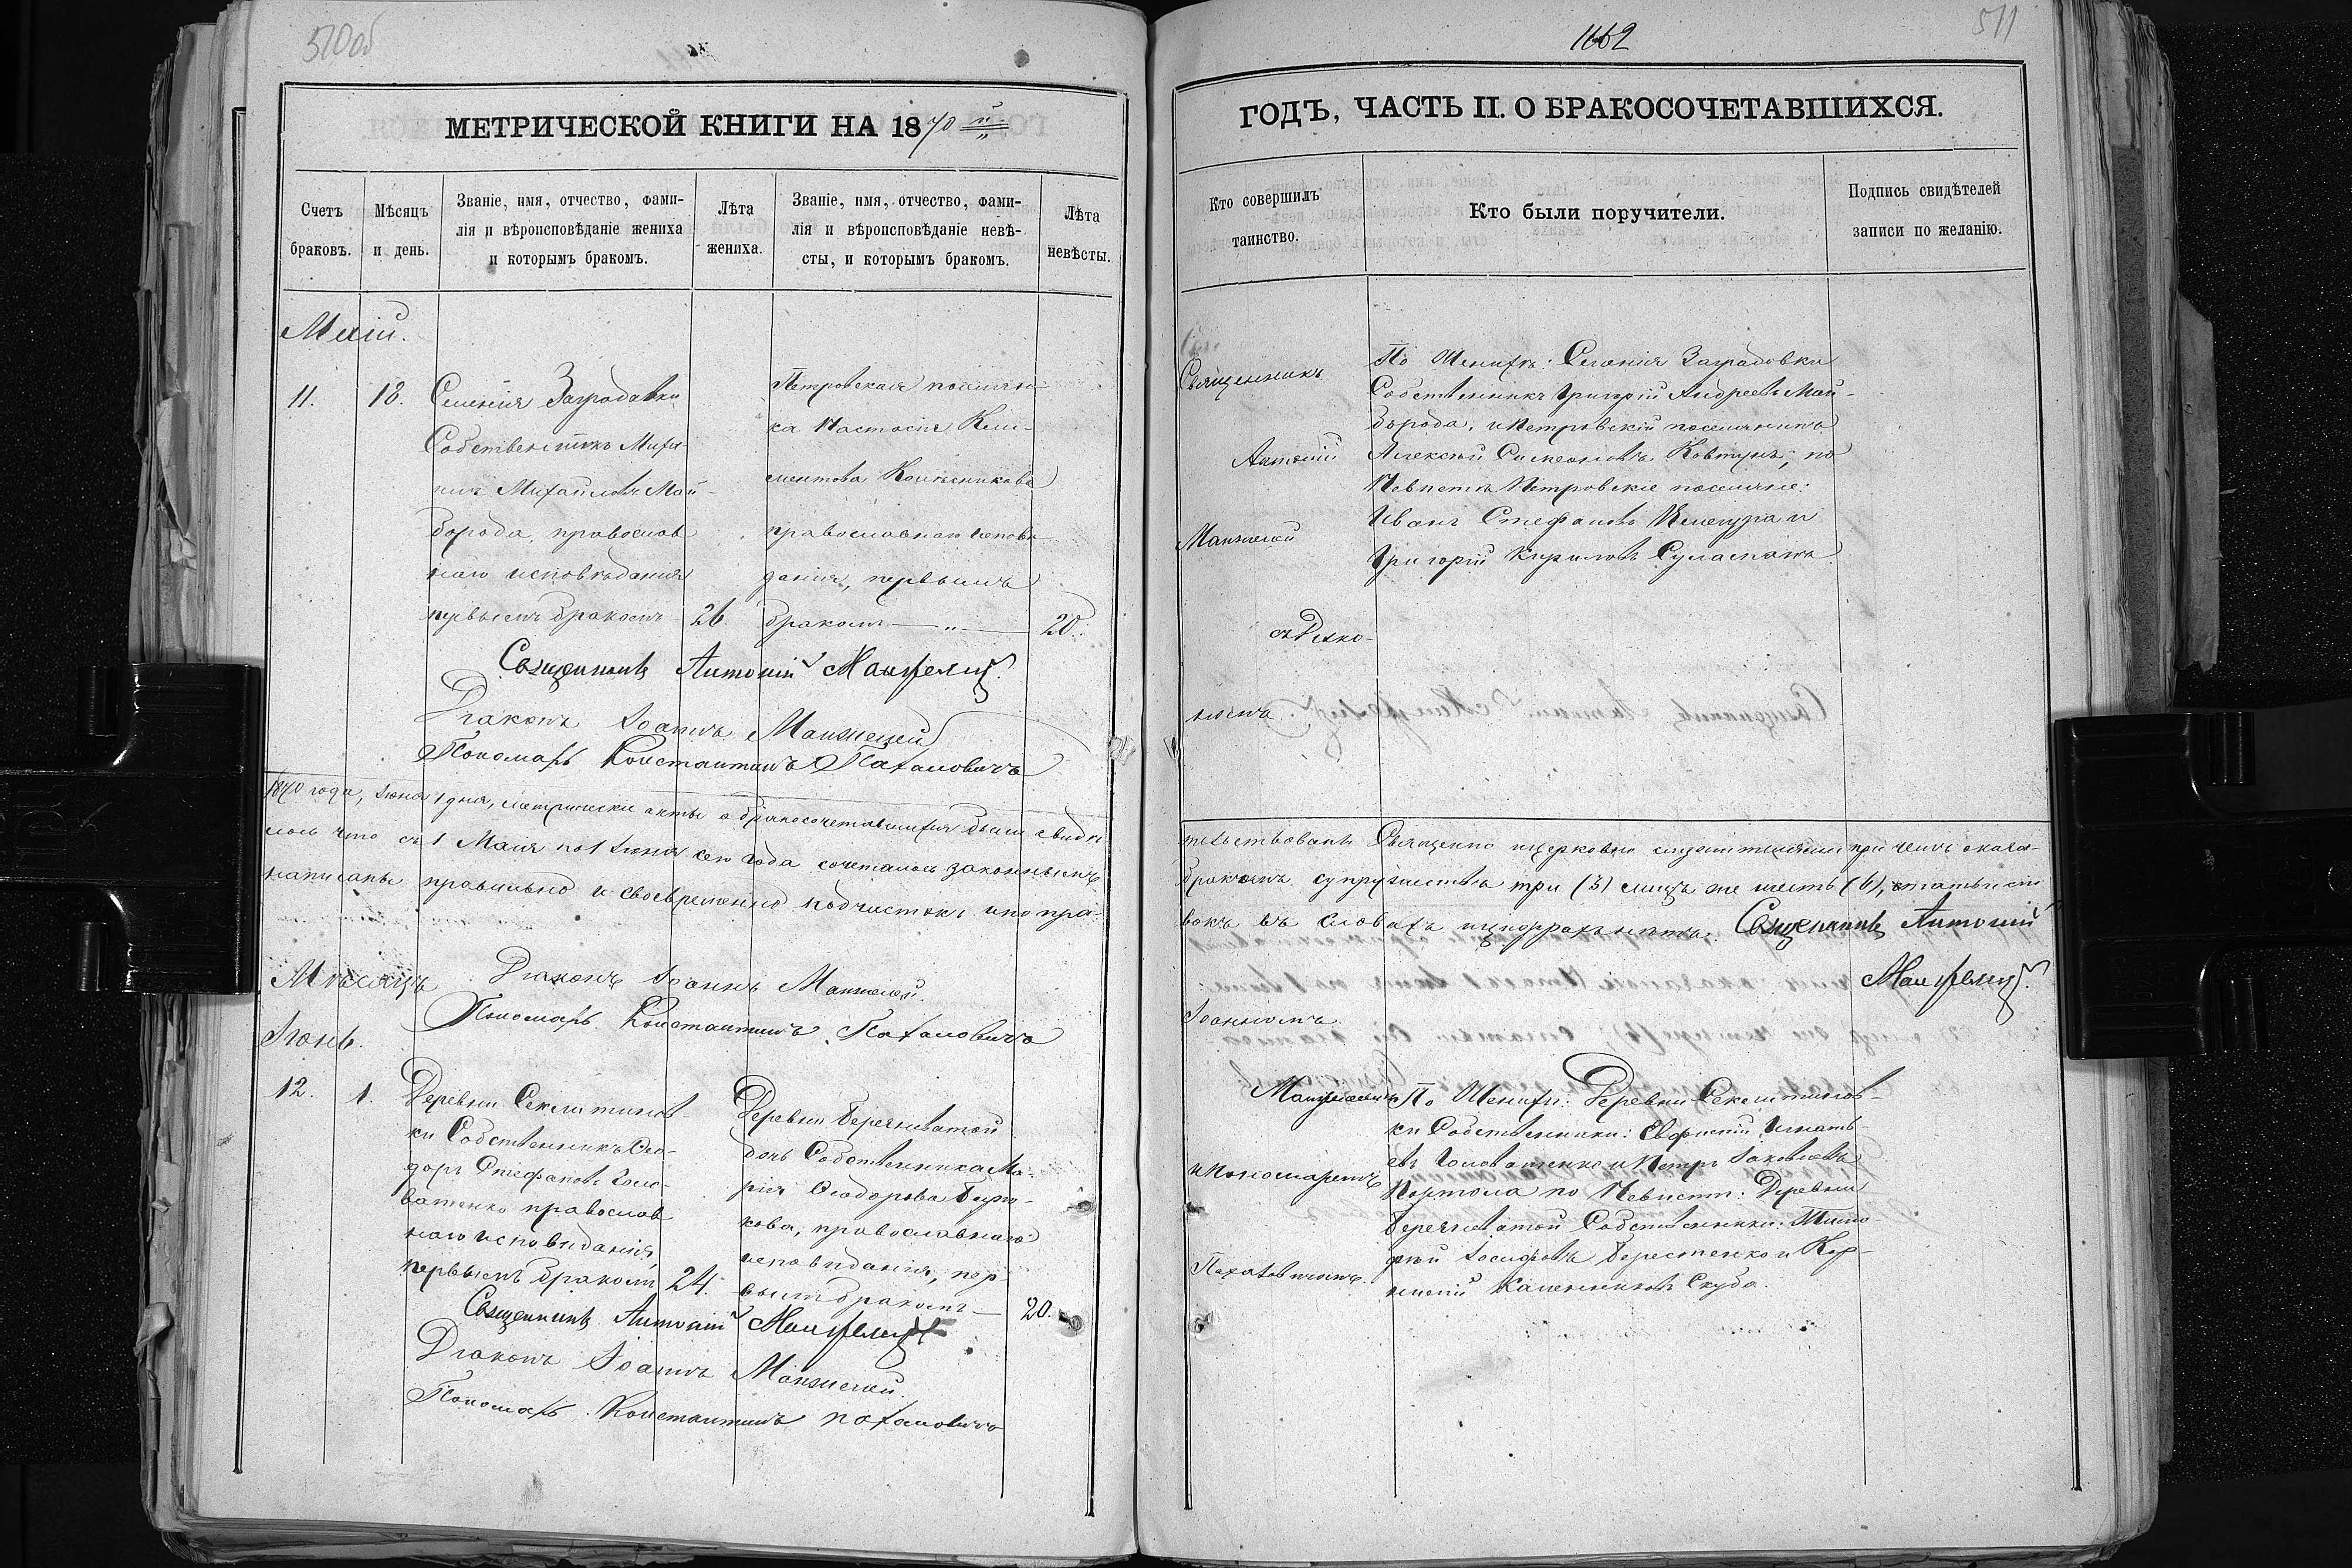 510об
МЕТРИЧЕСКОЙ КНИГИ НА 1870 й
Счетъ браковъ.
Мѣсяцъ и день.
Званіе, имя, отчество, фами-
лія и вѣроисповѣданіе жениха
и которымъ бракомъ.
Лѣта жениха.
Званіе, имя, отчество, фами-
лія и вѣроисповѣданіе невѣ-
сты, и которымъ бракомъ.
Лѣта невѣсты.
Маій.
11. 18.
Селенія Заградовки
Собственникъ Миха-
илъ Михайловъ Май-
борода, православ
наго исповѣданія
первымъ бракомъ 26.
Петровская поселян-
ка Настасія Кли-
ментова Колесникова
православнаго исповѣ
данія, первымъ
бракомъ — „ — 20.
Священникъ Антоній Манжелей
Діаконъ Іоаннъ Манжелей
Пономарь Константинъ Пахаловичъ
1870 года, Іюня 1 дня, метрически акты о бракосочетавшихся были свидѣ
лось что съ 1 Маія по 1 Іюня сего года сочеталось законнымъ
написаны правильно и своевременно подчистокъ и попра-
Діаконъ Іоаннъ Манжелей.
Пономарь Константинъ Пахаловичъ
Мѣсяцъ
Іюнь.
12. 1.
Деревни
ки Собственникъ Ѳео-
доръ Стефановъ Голо-
ватенко православ
наго исповѣданія,
первымъ бракомъ 24.
Деревни Березниватой
дочь Собственника Ма-
рія Ѳеодорова Бирю-
кова, православнаго
исповѣданія, пер-
вымъ бракомъ — 20.
Священникъ Антоній Манжелей
Діаконъ Іоаннъ Манжелей.
Пономарь Константинъ Пахаловичъ
1162
511
ГОДЪ, ЧАСТЬ II. О БРАКОСОЧЕТАВШИХСЯ.
Кто совершилъ таинство.
Кто были поручители.
Подпись свидѣтелей
записи по желанію.
Священникъ
Антоній
Манжелей
съ Діако-
номъ
По Женихѣ: Селенія Заградовки
Собственникъ Григорій Андреевъ Май-
борода, и Петровскій поселянинъ
Алексѣй Симеоновъ Ковтунъ; по
Невѣстѣ Петровскіе поселяне:
Иванъ Стефановъ и
Григорій Кириловъ
тельствованы Священно и церковно служителями при чемъ оказа-
бракомъ супружества три (3) лицъ же шесть (6), статьи сіи
вокъ въ словахъ и цифрахъ нѣтъ. Священникъ Антоній
Манжелей
Іоанномъ
Манжелеемъ
и Пономаремъ
Пахаловичемъ.
По Женихѣ: Деревни
ки Собственники: Евфимій Игнать-
евъ Головатенко и Петръ Іаковлевъ
по Невѣстѣ: Деревни
Березниватой Собственники: Тимо
фей Іосифовъ Берестенко и Кор-
нилій Скуба.